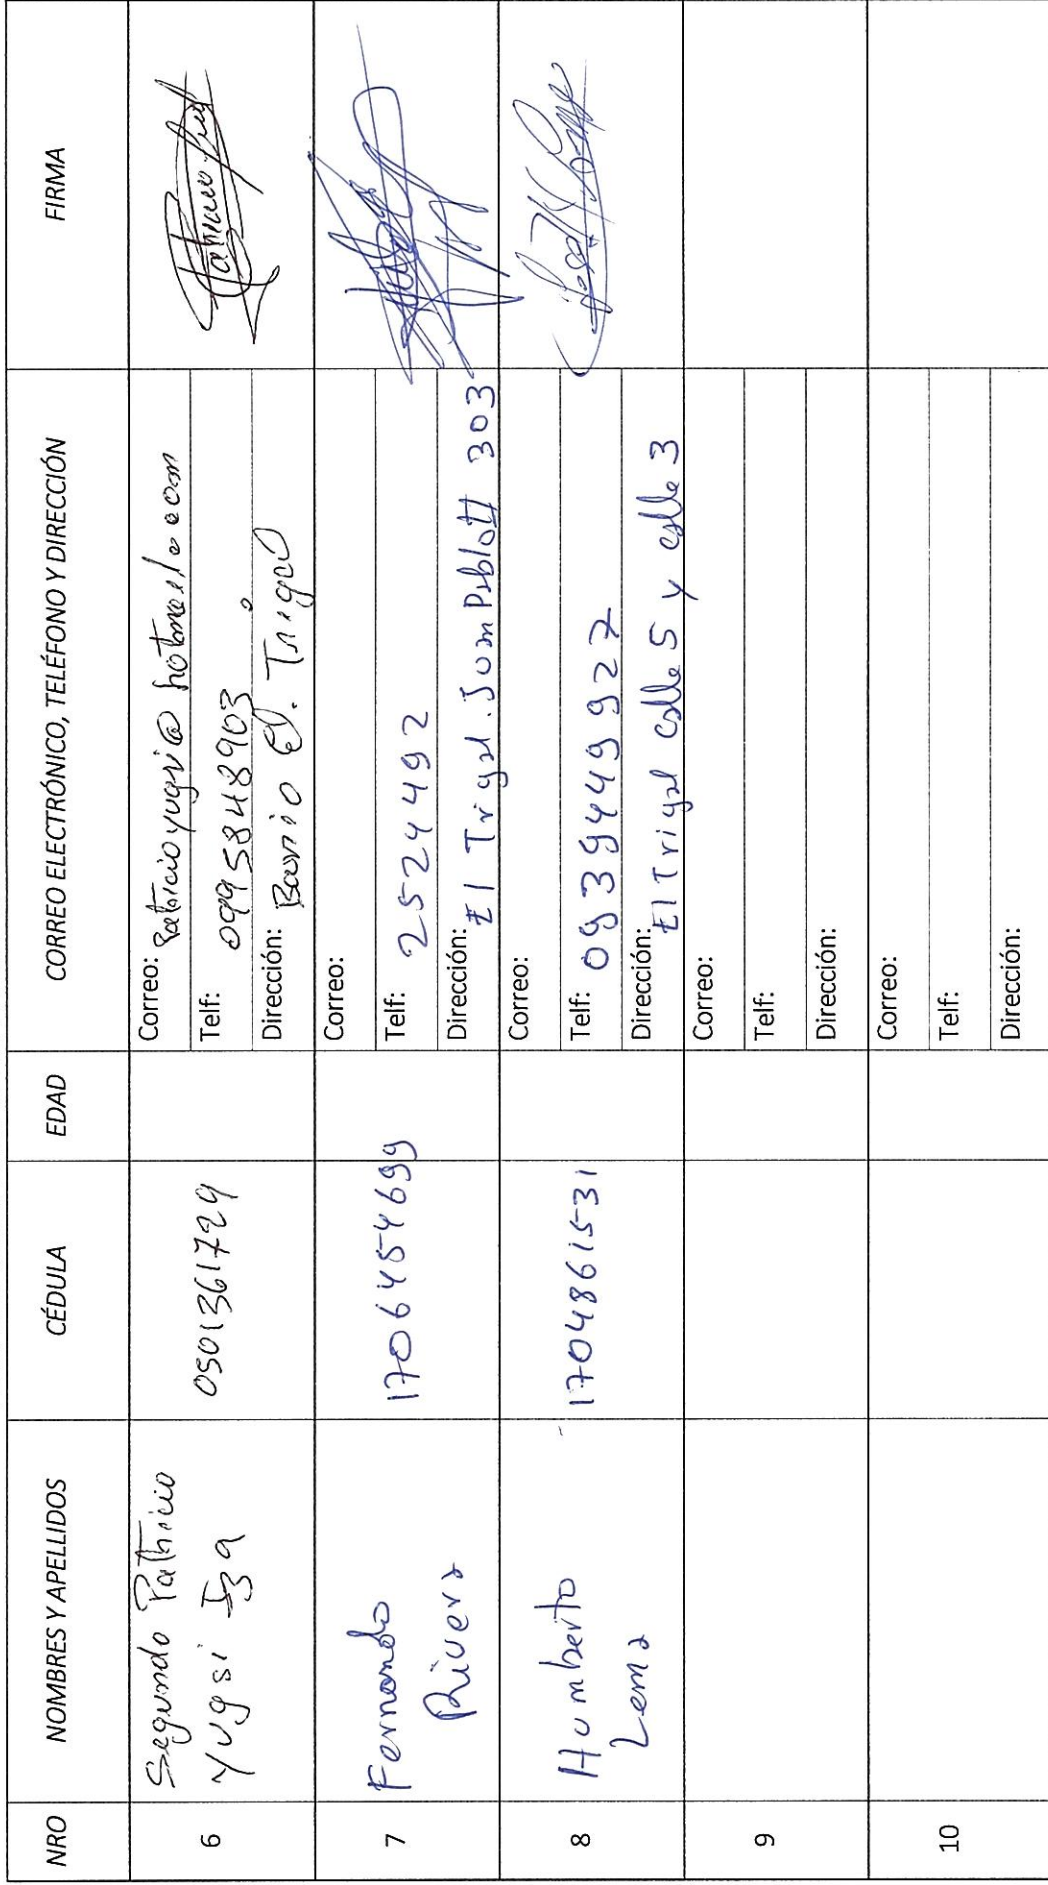 NRO NOMBRES Y APELLIDOS CÉDULA EDAD CORREO ELECTRÓNICO, TELÉFONO Y DIRECCIÓN FIRMA
6
Segundo Patricio
Yugsi Iza
0501361729
Correo: patricioyugsi@hotmail.com
Telf: 0995848903
Dirección: Barrio El. Trigal
7
Fernando
Rivera
1706454699
Correo:
Telf: 2524492
Dirección: El Trigal. Juan Pablo II 303
8
Humberto
Lema
1704861531
Correo:
Telf: 0939449927
Dirección: El Trigal calle 5 y calle 3
9
Correo:
Telf:
Dirección:
10
Correo:
Telf:
Dirección: